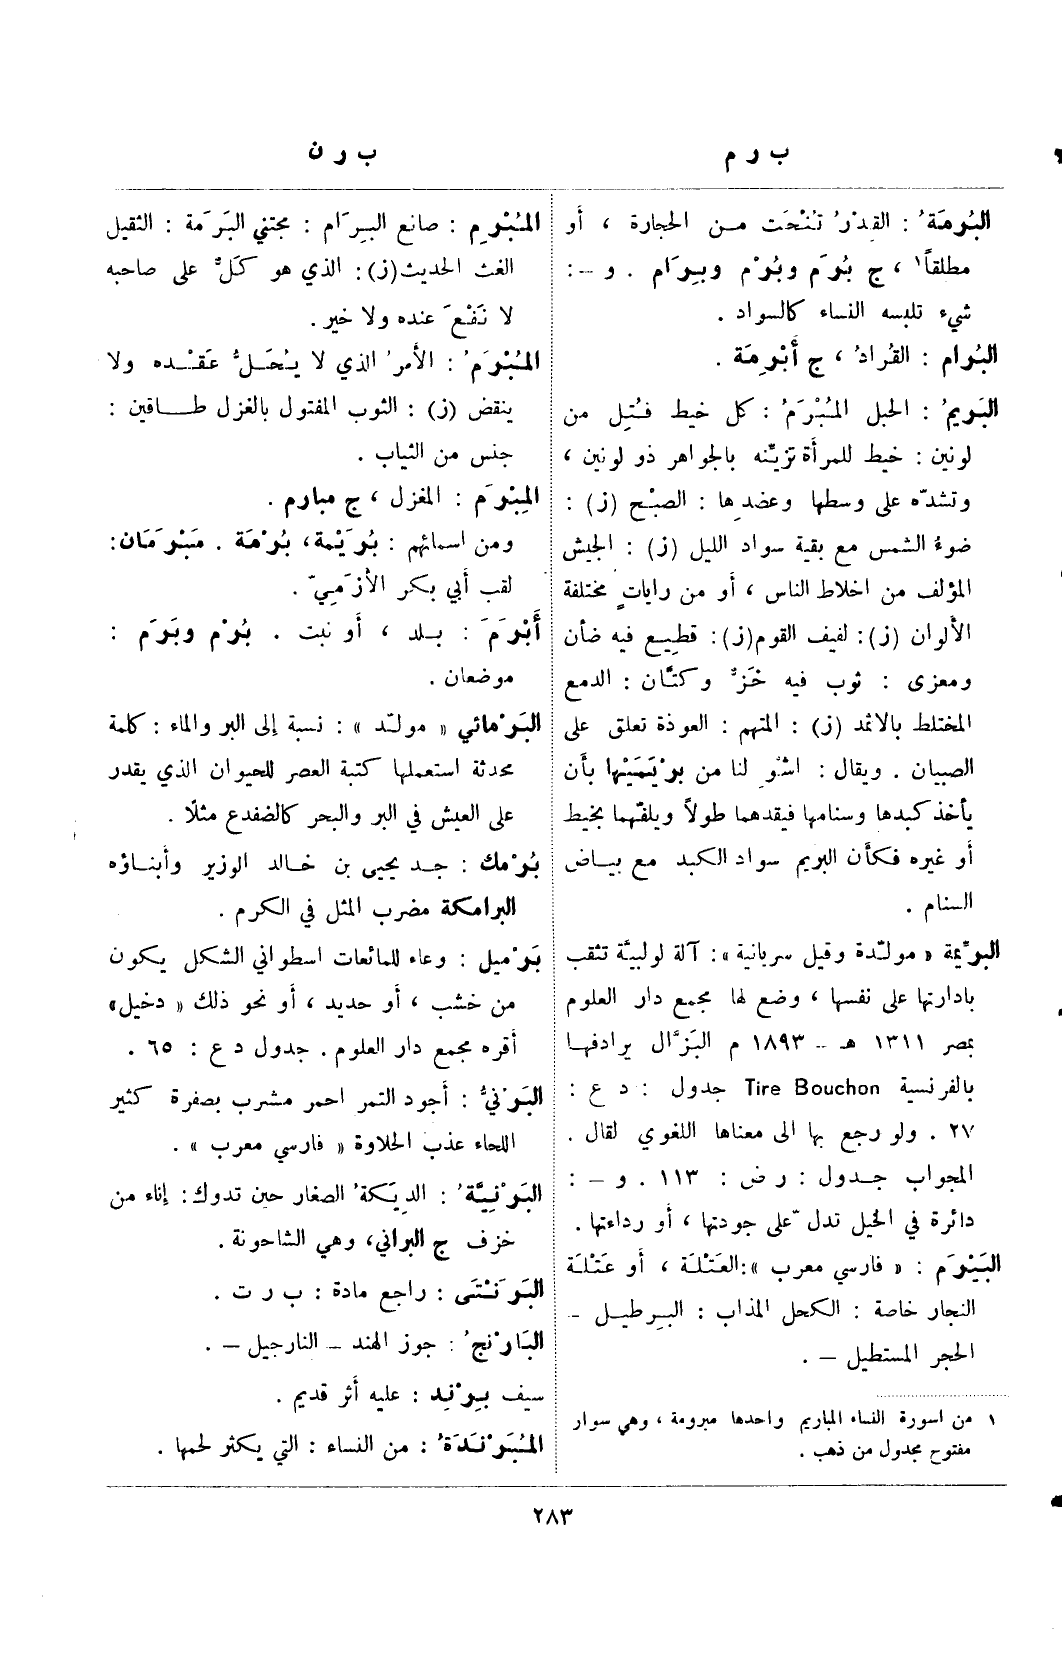 ب ر م
ب ر ن
البُرمَةُ : القِدْرُ تُنْحَت مـن الحجارة ، أو
مطلقاً١ ، ج بُرَم وبُرْم وبِرَام . و –:
شيء تلبسه النساء كالسواد .
البُرام : القُرادُ ، ج أَبْرِمَة .
البَريمُ : الحبل المُبْرَمُ : كل خيط فُتِل من
لونين : خيط للمرأة تزيّنه بالجواهر ذو لونين ،
وتشدّه على وسطها وعضدِها : الصبْح (ز) :
ضوءُ الشمس مع بقية سواد الليل (ز) : الجيش
المؤلف من اخلاط الناس ، أو من راياتٍ مختلفة
الألوان (ز): لفيف القوم(ز): قطيع فيه ضأن
ومعزى : ثوب فيه خَزٌّ وكتَّان : الدمع
المختلط بالاثمد (ز) : المتهم : العوذة تعلق على
الصبيان . ويقال : اشْوِ لنا من بَرْيَمَيْها بأن
يأخذ كبدها وسنامها فيقدهما طولاً ويلفّهما بخيط
أو غيره فكأن البريم سواد الكبد مع بيـاض
السنام .
البرّيمة « مولّدة وقيل سريانية »: آلة لولبيَّة تثقب
بادارتها على نفسها ، وضع لها مجمع دار العلوم
بمصر ١٣١١ هـ – ١٨٩٣ م البَزَّال يرادفهـا
بالفرنسية Tire Bouchon جدول : د ع :
٢٧ . ولو رجع بها الى معناها اللغوي لقال .
المجواب جـدول : ر ض : ١١٣ . و – :
دائرة في الخيل تدلّ على جودتها ، أو رداءتها .
البَيْرَم : « فارسي معرب »:العَتَلَة ، أو عَتَلَة
النجار خاصة : الكحل المذاب : البـرطيـل –
الحجر المستطيل – .
١ من اسورة النساء المباريم واحدها مبرومة ، وهي سوار
مفتوح مجدول من ذهب .
المُبْرِم : صانع البـِرَام : مجتني البَرَمة : الثقيل
الغث الحديث(ز): الذي هو كَلٌّ على صاحبه
لا نَفْعَ عنده ولا خير .
المُبْرَمُ : الأمرُ الذي لا يـُحَـلُّ عَقـْـده ولا
ينقض (ز) : الثوب المفتول بالغزل طـــاقين :
جنس من الثياب .
المِبْرَم : المغزل ، ج مبارم .
ومن اسمائهم : بُرَيْمة، بُرْمَة . مَبْرَمَان:
لقب أبي بكر الأزَمِيّ .
أَبْرَمَ : بـلد ، أو نبت . بُرْم وبَرَم :
موضعان .
البَرْمائي « مولّد » : نسبة إلى البر والماء : كلمة
محدثة استعملها كتبة العصر للحيوان الذي يقدر
على العيش في البر والبحر كالضفدع مثلًا .
بُرْمك : جـد يحيى بن خـالد الوزير وأبنـاؤه
البرامكة مضرب المثل في الكرم .
بَرْميل : وعاء للمائعات اسطواني الشكل يكون
من خشب ، أو حديد ، أو نحو ذلك « دخيل»
أقره مجمع دار العلوم . جدول د ع : ٦٥ .
البَرْنيُّ : أجود التمر احمر مشرب بصفرة كثير
اللحاء عذب الحلاوة « فارسي معرب » .
البَرْنِيَّةُ : الديَكةُ الصغار حين تدوك: إناء من
خزف ج البراني، وهي الشاحونة .
البَرَنْتَى : راجع مادة : ب ر ت .
البَارْنجُ : جوز الهند – النارجيل – .
سيف بِرِنْد : عليه أثر قديم .
المُبَرْنَدَةُ : من النساء : التي يكثر لحمها .
٢٨٣